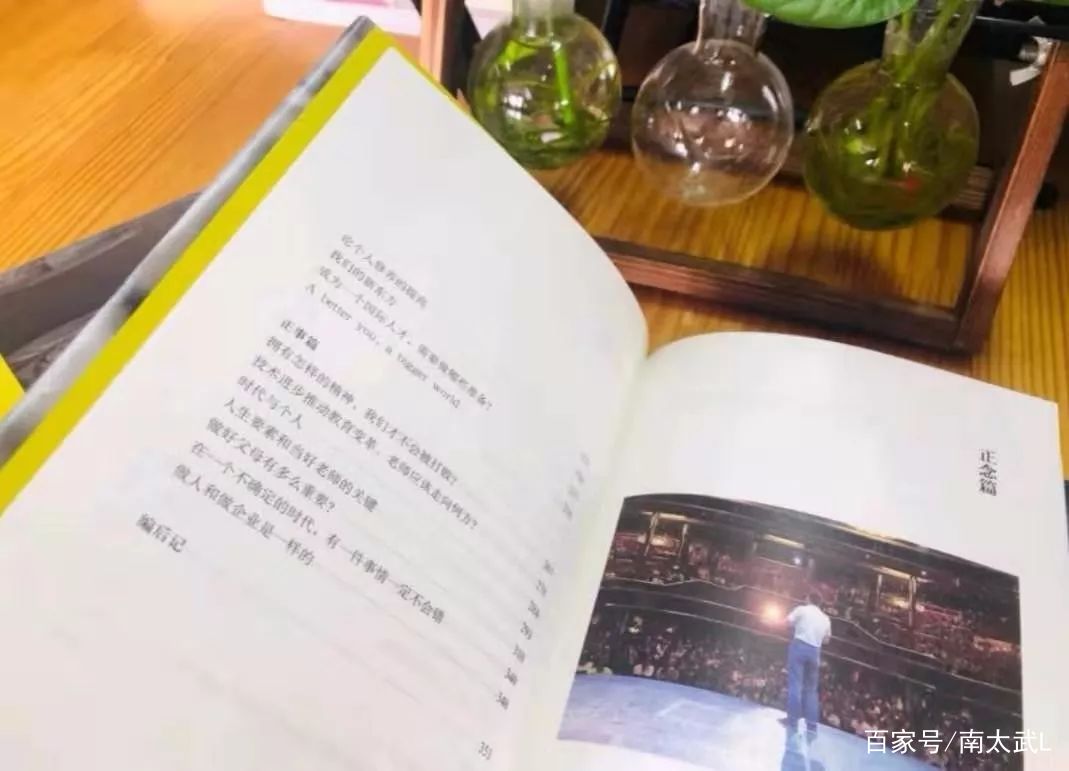 论个人修养的提高
我们的新东方
成为一个国际人才，需要做哪些准备？
A better you, a vaster world
正事篇
拥有怎样的精神，我们才不会被打败？
技术进步推动教育变革，老师应该走向何方？
时代与个人
人生要素和当好老师的关键
做好父母有多么重要？
在一个不确定的时代，有一件事情一定不会错
做人和做企业是一样的
编后记
351
正念篇
百家号/南太武L